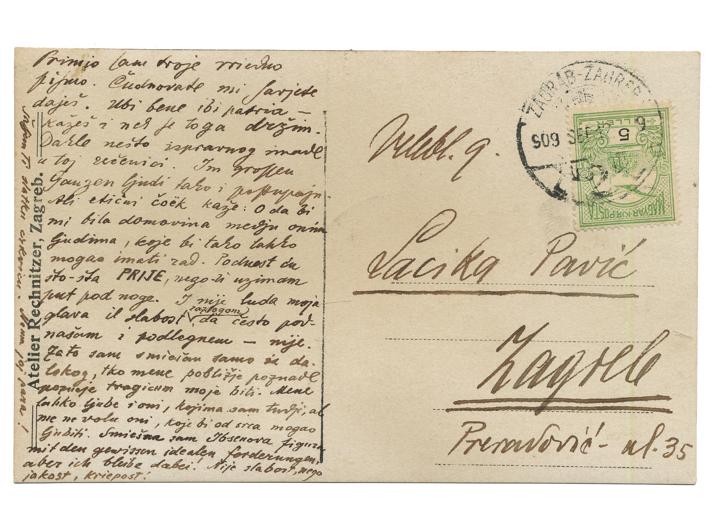 Primio sam tvoje vriedno
pismo. Čudnovate mi savjete
daješ. Ubi bene ibi patria —
kažeš i nek se toga držim.
nešto ispravnog
u toj rečenici. Im grossen
Ganzen ljudi tako i postupaju.
Ali etični kaže: O da bi
mi bila domovina medju onim
ljudima, koje bi tako lahko
mogao imati rad. Podnest ću
što-šta PRIJE, nego-li uzimam
put pod noge. I nije luda moja
glava il slabost, da često pod-
razlogom
našam i podlegnem — nije.
Zato sam smiešan samo iz da-
lekog, tko mene pobliže poznade
tragicum moje biti. Mene
lahko ljube i oni, kojima sam tudji, al
me ne vole oni, koje bi od srca mogao
ljubiti. Smiešna sam Ibsenova figura
mit den gewissen idealen Forderungen,
aber ich bleibe dabei. Nije slabost, nego
jakost, kriepost!
Atelier Rechnitzer, Zagreb.
Velebl. g.
Lacika Pavić
Zagreb
Preradović- ul. 35
ZÁGRÁB-ZAGREB
909 SEP
MAGYAR KIR. POSTA
5